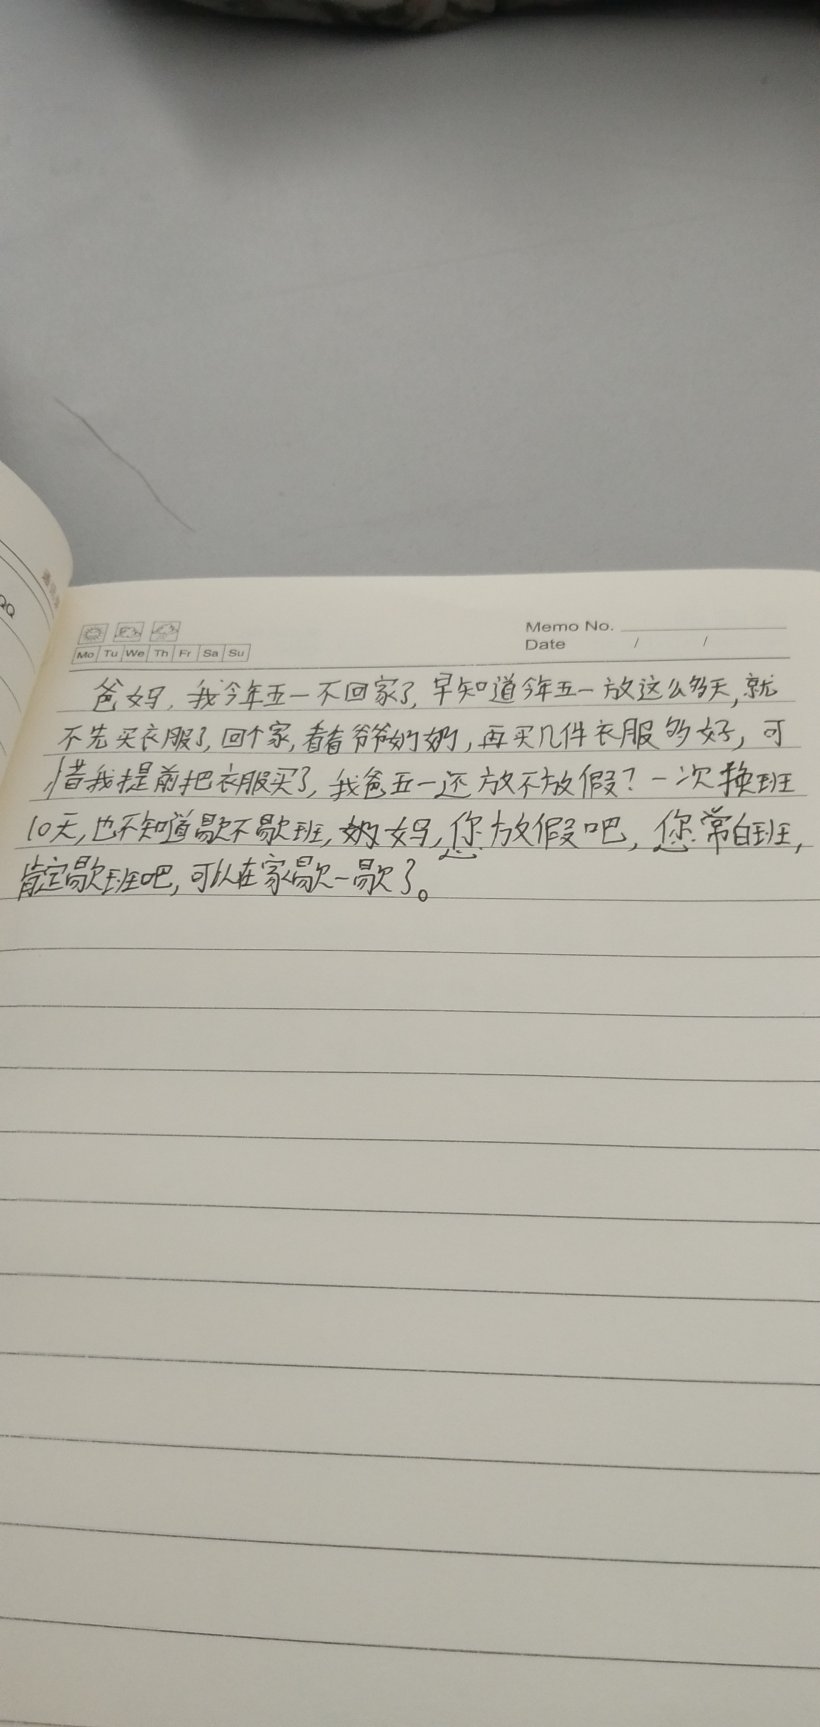 QQ
Memo No.
Date / /
Mo Tu We Th Fr Sa Su
爸妈，我今年五一不回家了，早知道今年五一放这么多天，就
不先买衣服了，回个家，看看爷爷奶奶，再买几件衣服多好，可
惜我提前把衣服买了，我爸五一还放不放假？一次换班
10天，也不知道歇不歇班，妈，您放假吧，您常白班，
肯定歇班吧，可以在家歇一歇了。